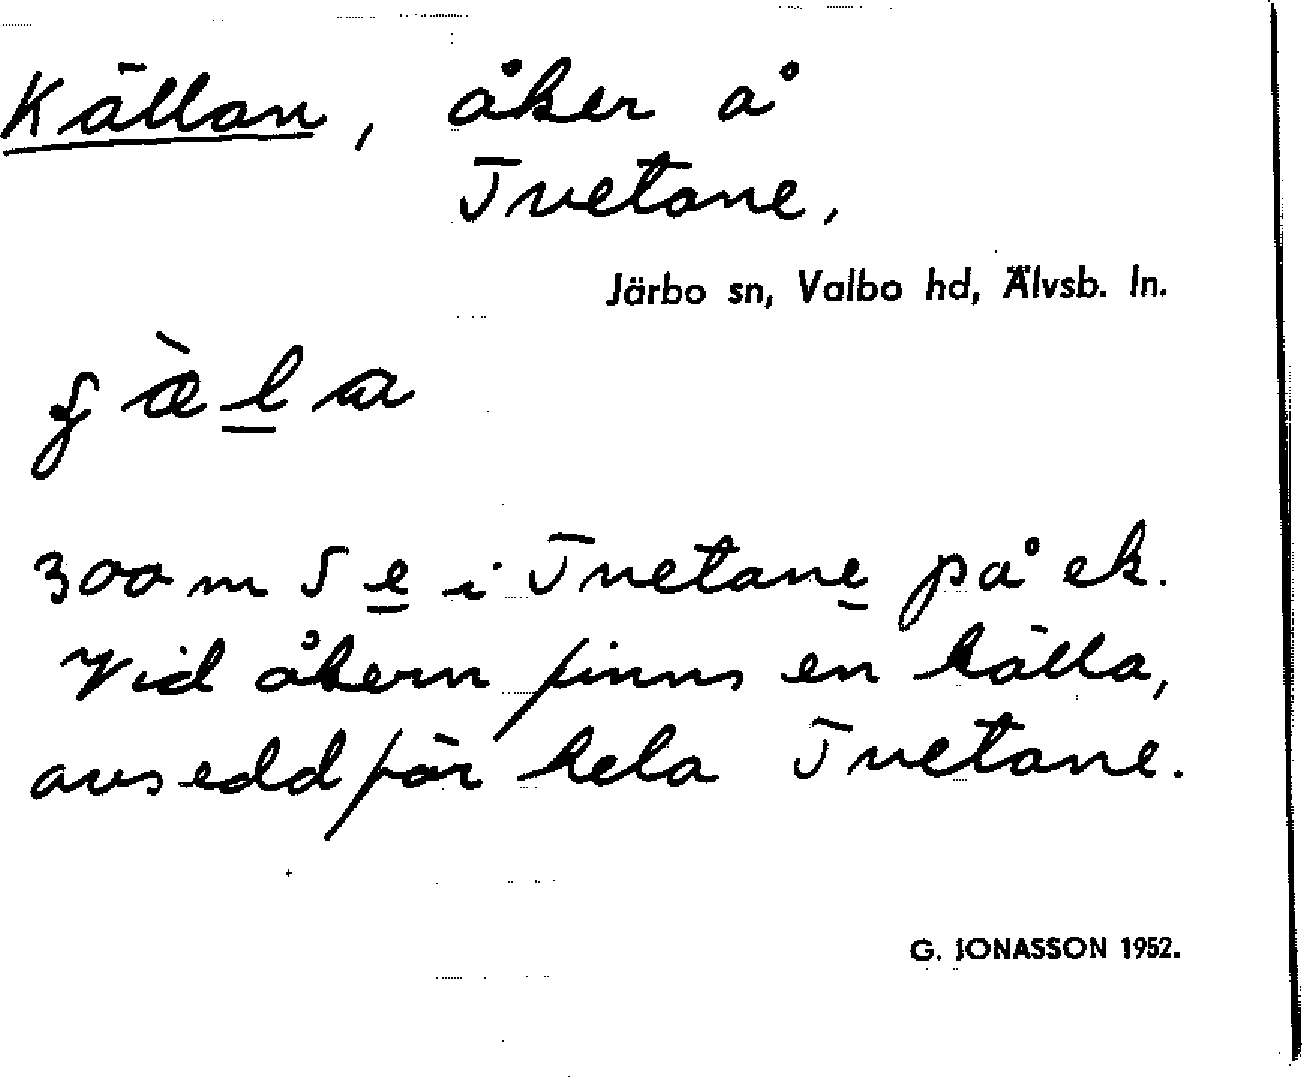 Källan, åker å
Tvetane,
Järbo sn, Valbo hd, Älvsb. ln.
300 m S e i Tvetane på ek.
Vid åkern finns en källa,
avsedd för hela Tvetane.
G. JONASSON 1952.